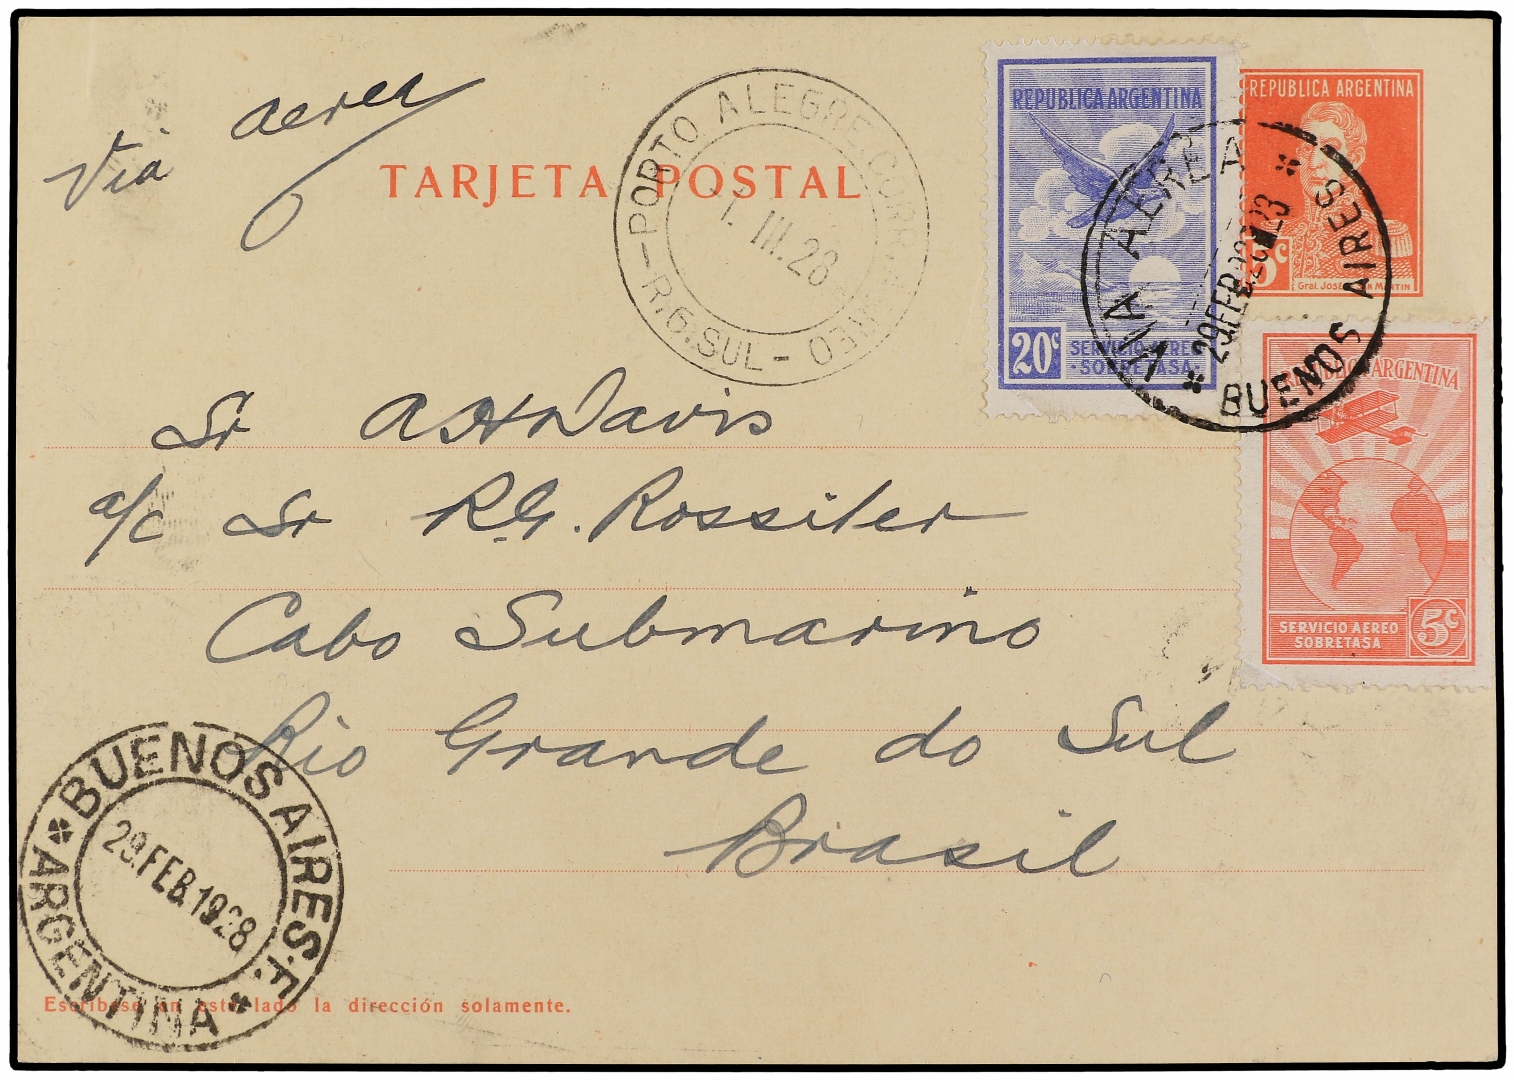 Via aerea
TARJETA POSTAL
PORTO ALEGRE. CORR. AEREO
1. III. 28
-R.G. SUL-
REPUBLICA ARGENTINA
20c SERVICIO AEREO
·SOBRETASA·
REPUBLICA ARGENTINA
5c
Gral. José San Martin
VIA AEREA
29.FEB.1928
BUENOS AIRES
REPUBLICA ARGENTINA
SERVICIO AEREO
SOBRETASA
5c
Sr A H Davis
a/c Sr R.G. Rossiter
Cabo Submarino
Rio Grande do Sul
Brasil
BUENOS AIRES·F.
29.FEB.1928
ARGENTINA
Escríbase en este lado la dirección solamente.